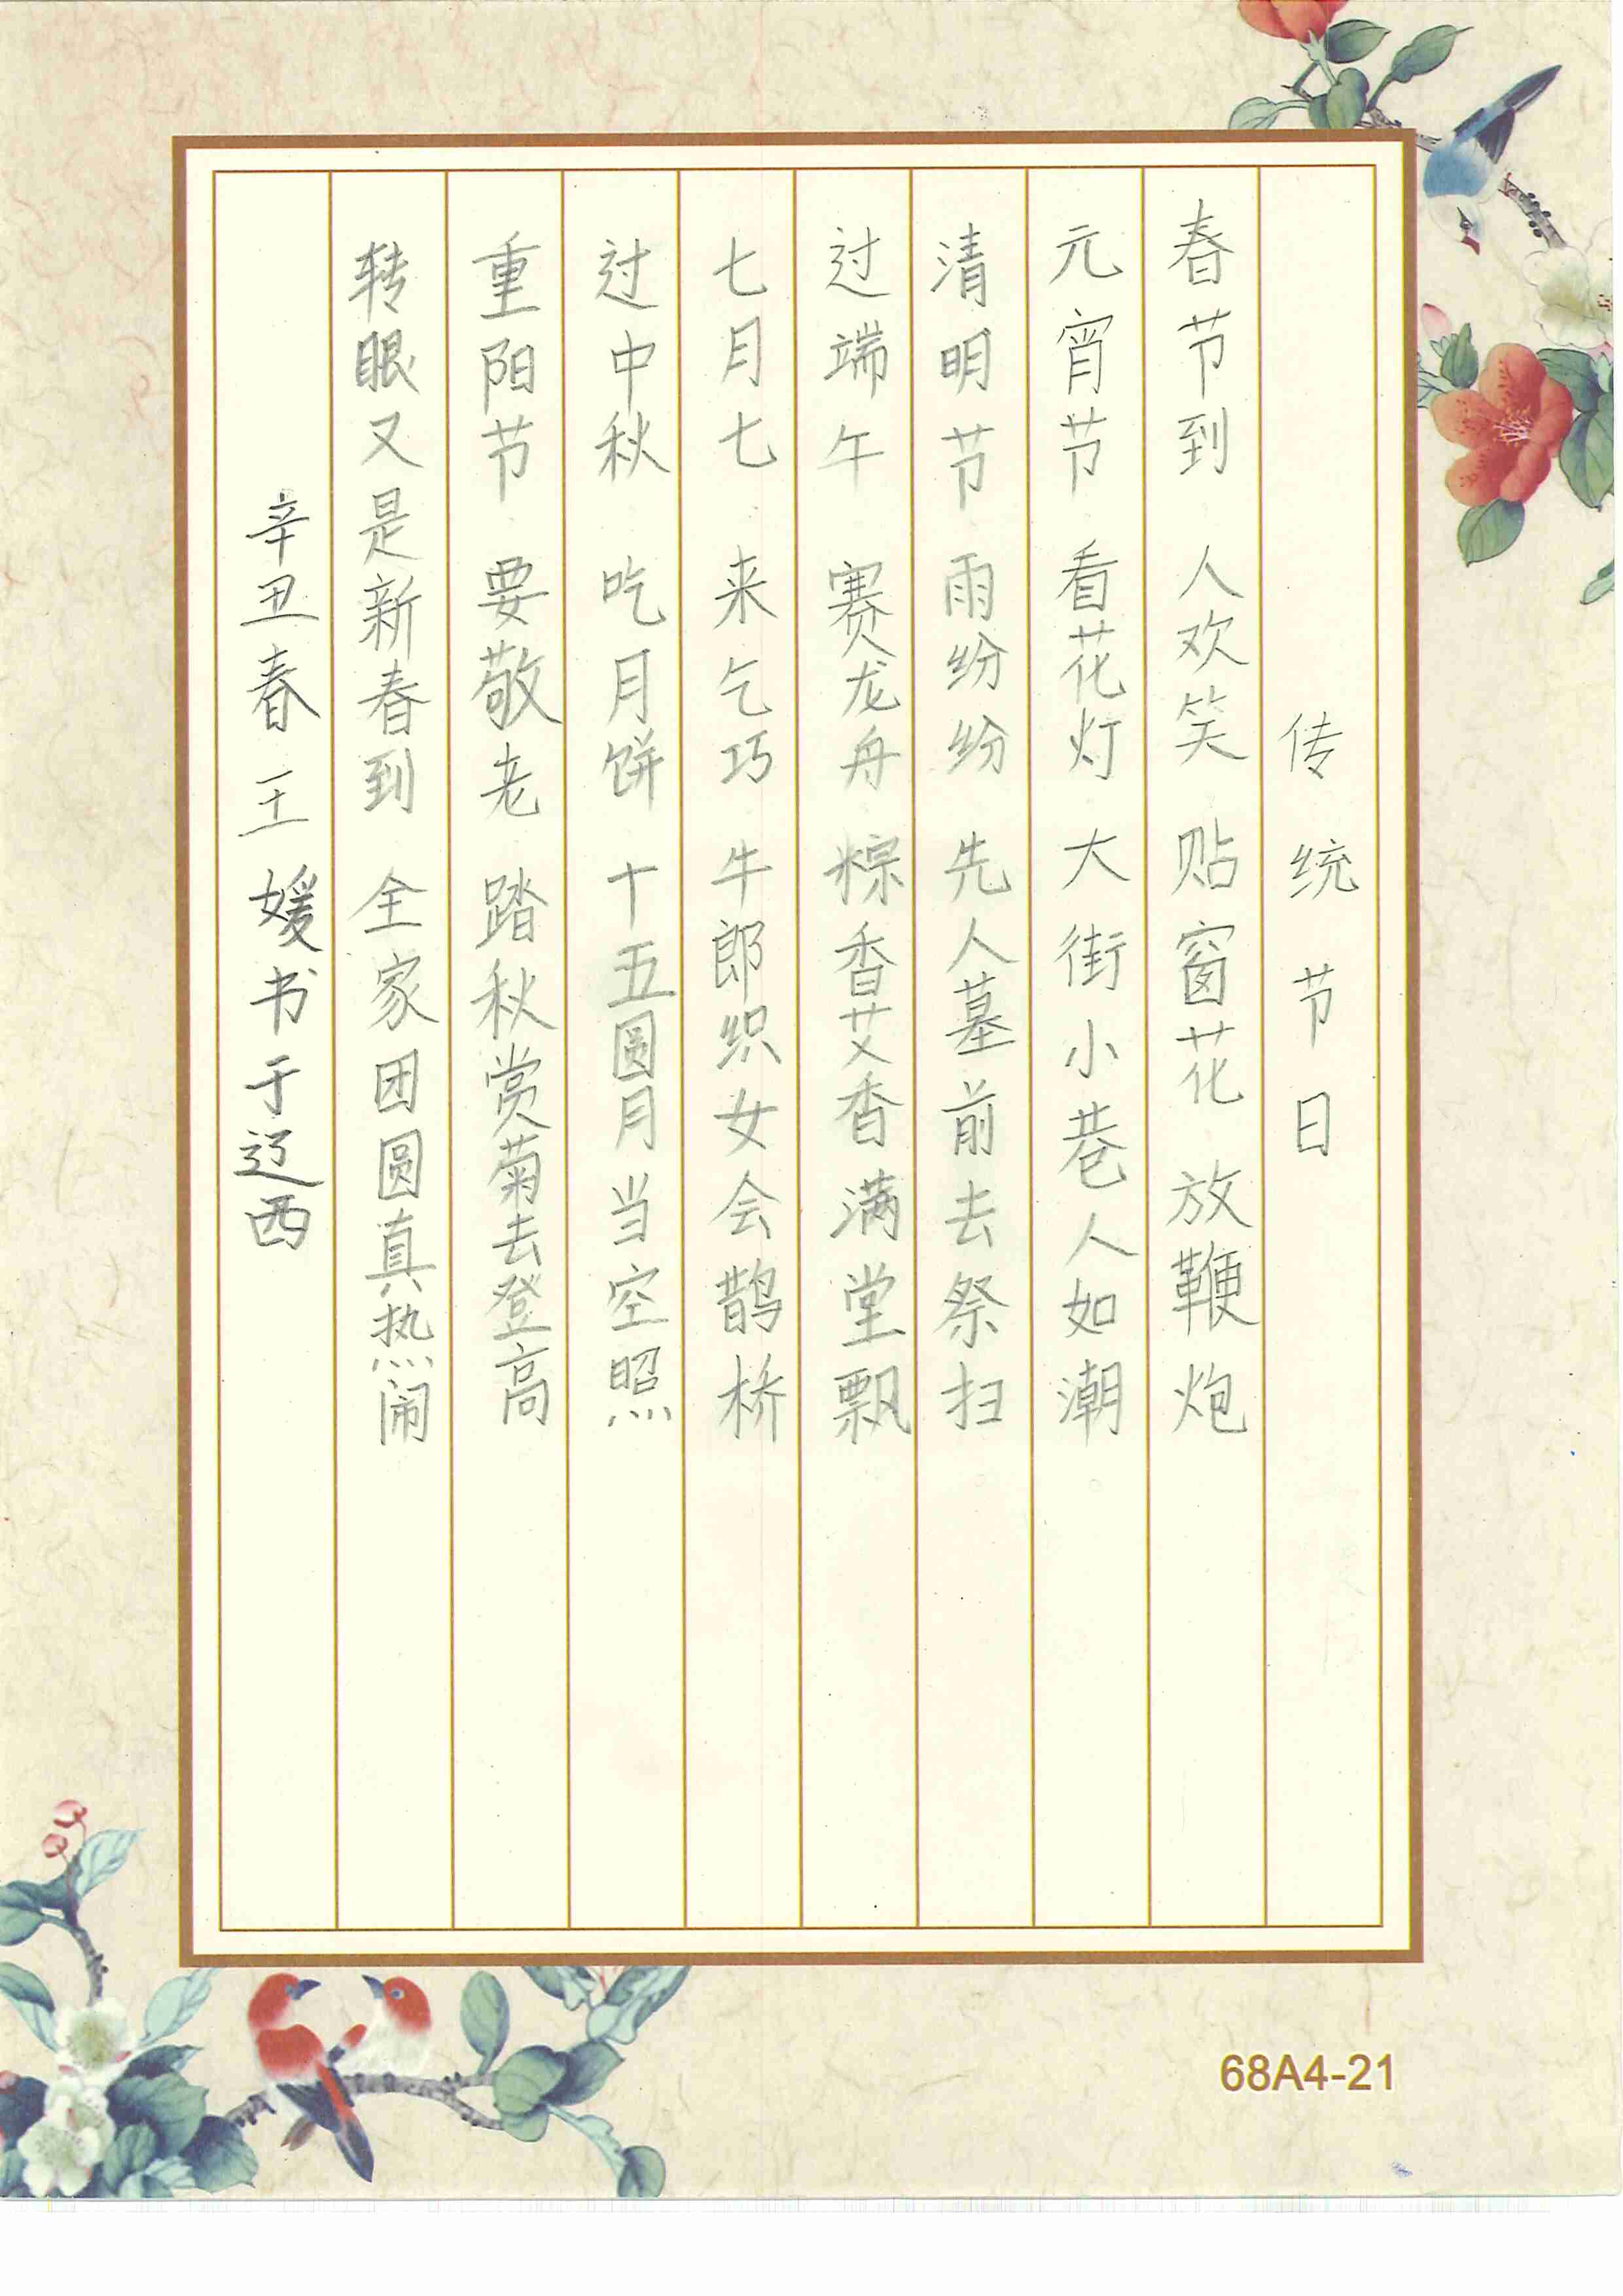 传统节日
春节到 人欢笑 贴窗花 放鞭炮
元宵节 看花灯 大街小巷人如潮
清明节 雨纷纷 先人墓前去祭扫
过端午 赛龙舟 粽香艾香满堂飘
七月七 来乞巧 牛郎织女会鹊桥
过中秋 吃月饼 十五圆月当空照
重阳节 要敬老 踏秋赏菊去登高
转眼又是新春到 全家团圆真热闹
辛丑春 王媛书于辽西
68A4-21